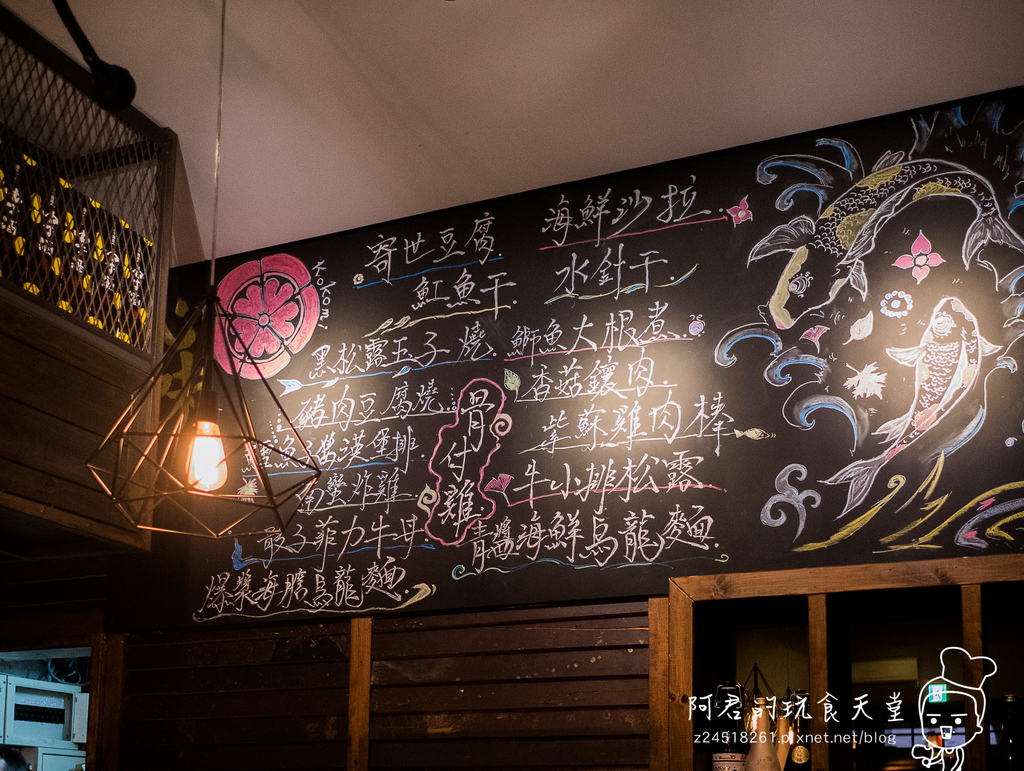 Kokomi
寄世豆腐
魟魚干
黑松露玉子燒
豬肉豆腐燒
漢堡排
南蠻炸雞
骰子菲力牛丼
爆漿海膽烏龍麵
骨付雞
海鮮沙拉
水針干
鰤魚大根煮
杏菇鑲肉
紫蘇雞肉棒
牛小排松露
青醬海鮮烏龍麵
阿君的玩食天堂
z24518261.pixnet.net/blog